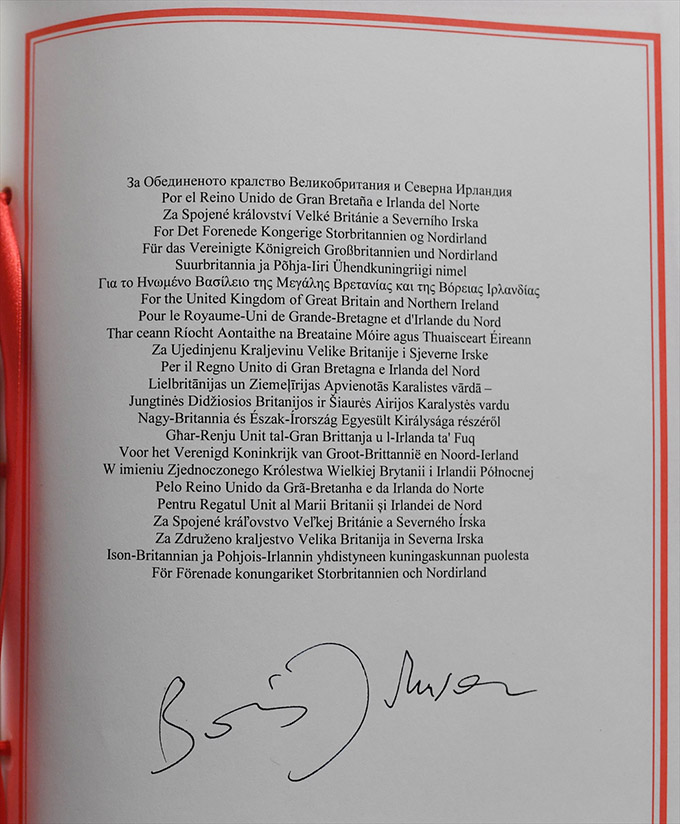 За Обединеното кралство Великобритания и Северна Ирландия
Por el Reino Unido de Gran Bretaña e Irlanda del Norte
Za Spojené království Velké Británie a Severního Irska
For Det Forenede Kongerige Storbritannien og Nordirland
Für das Vereinigte Königreich Großbritannien und Nordirland
Suurbritannia ja Põhja-Iiri Ühendkuningriigi nimel
Για το Ηνωμένο Βασίλειο της Μεγάλης Βρετανίας και της Βόρειας Ιρλανδίας
For the United Kingdom of Great Britain and Northern Ireland
Pour le Royaume-Uni de Grande-Bretagne et d'Irlande du Nord
Thar ceann Ríocht Aontaithe na Breataine Móire agus Thuaisceart Éireann
Za Ujedinjenu Kraljevinu Velike Britanije i Sjeverne Irske
Per il Regno Unito di Gran Bretagna e Irlanda del Nord
Lielbritānijas un Ziemeļīrijas Apvienotās Karalistes vārdā –
Jungtinės Didžiosios Britanijos ir Šiaurės Airijos Karalystės vardu
Nagy-Britannia és Észak-Írország Egyesült Királysága részéről
Għar-Renju Unit tal-Gran Brittanja u l-Irlanda ta' Fuq
Voor het Verenigd Koninkrijk van Groot-Brittannië en Noord-Ierland
W imieniu Zjednoczonego Królestwa Wielkiej Brytanii i Irlandii Północnej
Pelo Reino Unido da Grã-Bretanha e da Irlanda do Norte
Pentru Regatul Unit al Marii Britanii și Irlandei de Nord
Za Spojené kráľovstvo Veľkej Británie a Severného Írska
Za Združeno kraljestvo Velika Britanija in Severna Irska
Ison-Britannian ja Pohjois-Irlannin yhdistyneen kuningaskunnan puolesta
För Förenade konungariket Storbritannien och Nordirland
Boris Johnson